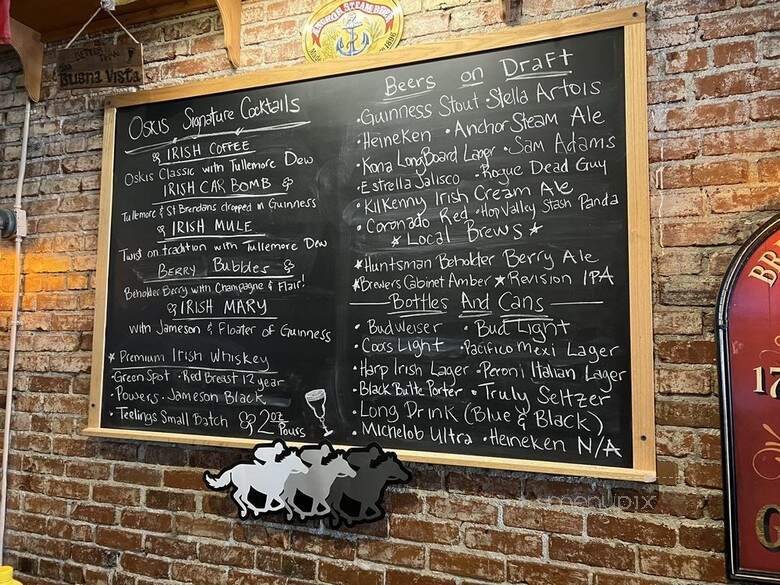 ANCHOR STEAM BEER
Buena Vista
Oskis Signature Cocktails
IRISH COFFEE
Oskis Classic with Tullemore Dew
IRISH CAR BOMB
Tullemore & St Brendans dropped in Guinness
IRISH MULE
Twist on tradition with Tullemore Dew
BERRY Bubbles
Beholder Berry with Champagne & Flair!
IRISH MARY
with Jameson & Floater of Guinness
* Premium Irish Whiskey
• Green Spot • Red Breast 12 year
• Powers • Jameson Black
• Teelings Small Batch & 2oz Pours
Beers on Draft
• Guinness Stout • Stella Artois
• Heineken • Anchor Steam Ale
• Kona LongBoard Lager • Sam Adams
• Estrella Jalisco • Rogue Dead Guy
• Kilkenny Irish Cream Ale
• Coronado Red • Hop Valley Stash Panda
* Local Brews *
* Huntsman Beholder Berry Ale
* Brewers Cabinet Amber * Revision IPA
Bottles And Cans
• Budweiser • Bud Light
• Coors Light • Pacifico Mexi Lager
• Harp Irish Lager • Peroni Italian Lager
• Black Butte Porter • Truly Seltzer
• Long Drink (Blue & Black)
• Michelob Ultra • Heineken N/A
menupix
BR
17
G